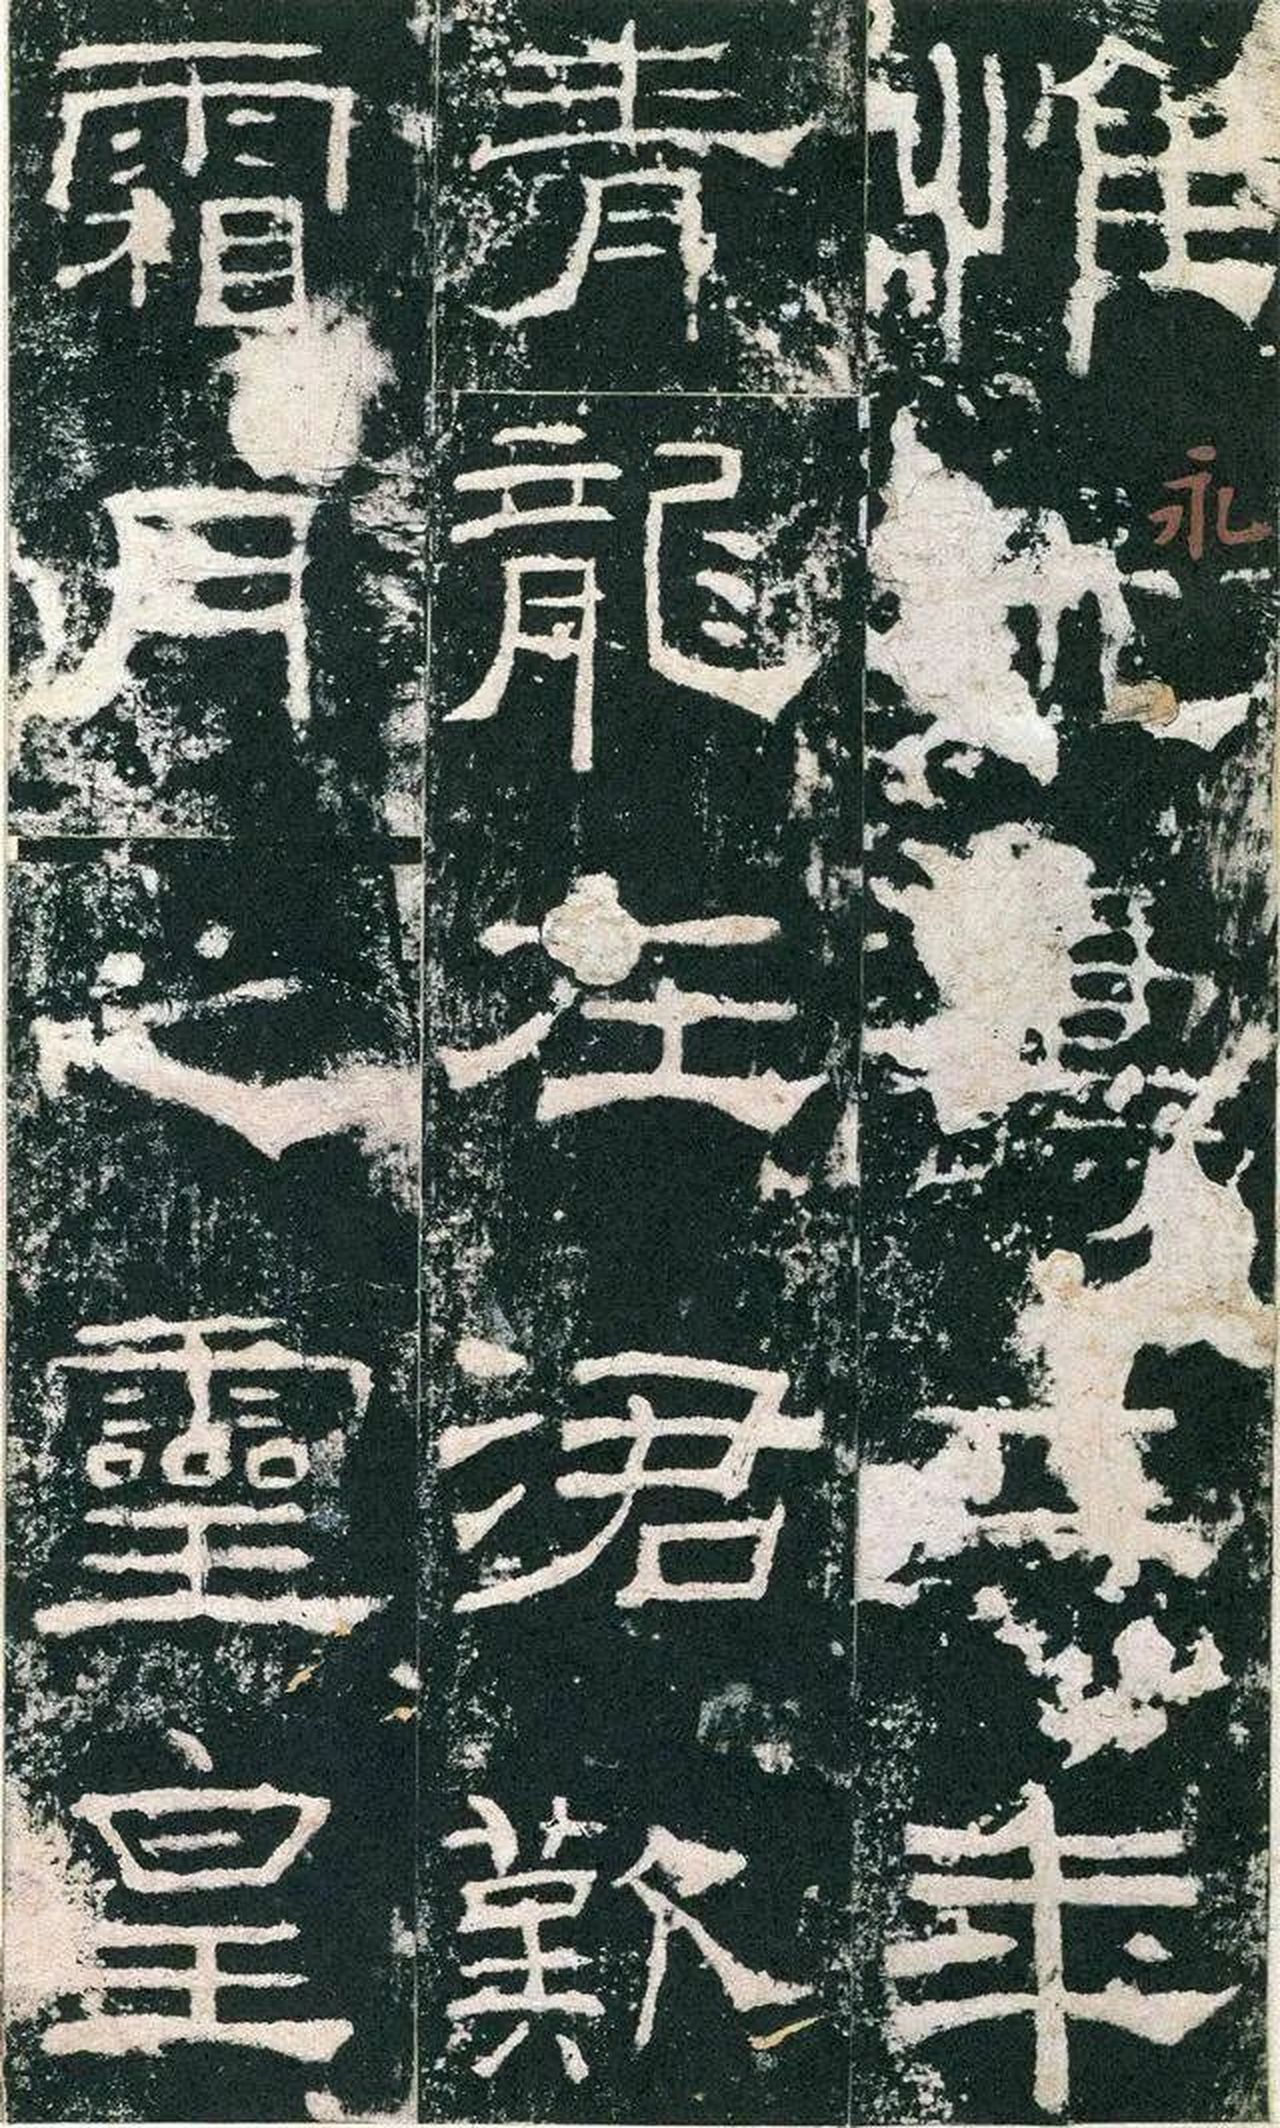 惟永壽二年
永
青龍在涒歎
霜月之靈皇